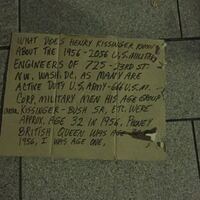 WHAT DOES HENRY KISSINGER KNOW
ABOUT THE 1956-2056 U.S. MILITARY
ENGINEERS OF 725 - 23RD ST.
NW, WASH, DC, AS MANY ARE
ACTIVE DUTY U.S. ARMY - 666 U.S. AI.
CORP, MILITARY MEN HIS AGE GROUP
KISSINGER - BUSH SR, ETC. WERE
APPROX. AGE 32 IN 1956, PHONEY
BRITISH QUEEN WAS AGE
1956, I WAS AGE ONE.